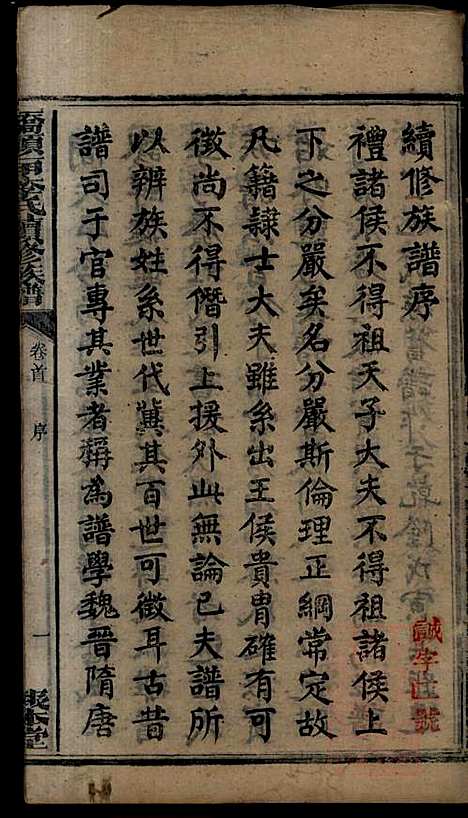 續修族譜序
禮諸侯不得祖天子大夫不得祖諸侯上
下之分嚴矣名分嚴斯倫理正綱常定故
凡籍隸士大夫雖系出王侯貴胄確有可
徵尚不得僭引上援外此無論已夫譜所
以辨族姓系世代冀其百世可徵耳古昔
譜司于官專其業者稱為譜學魏晉隋唐
氏續修族譜
卷首
序
一
堂